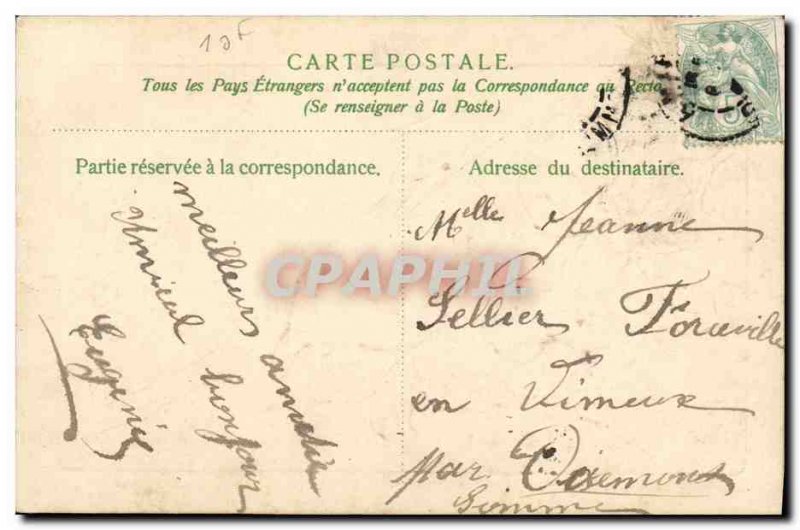 10F
CARTE POSTALE.
Tous les Pays Étrangers n'acceptent pas la Correspondance au Recto
(Se renseigner à la Poste)
Partie réservée à la correspondance.
Adresse du destinataire.
meilleurs
Amical bonjour
Eugénie
Melle Jeanne
Sellier
en Vimeux
par Oisemont
Somme
CPAPHIL